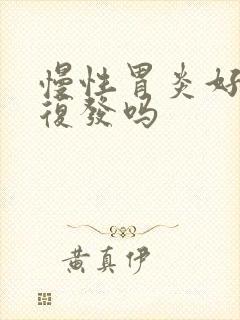 慢性胃炎好
復發吗
黄真伊